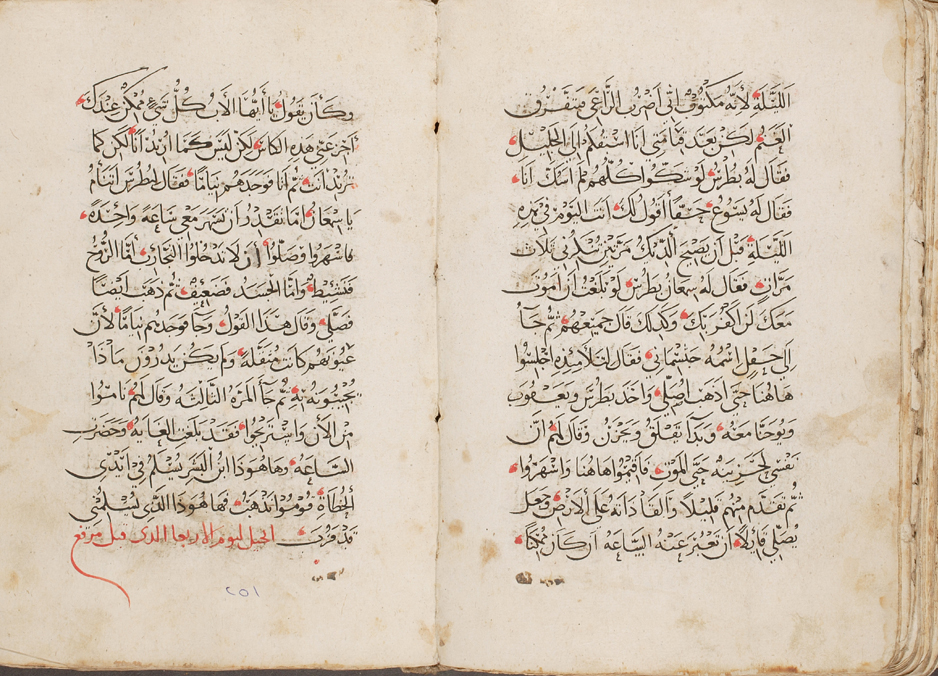 الليلة لأنه مكتوب اني أضرب الراعي فيتفرق
الغنم لكن بعد قيامتي انا اسبقكم الى الجليل
فقال له بطرس لو شكوا كلهم لم اشك انا
فقال له يسوع حقًا أقول لك انت اليوم في هذه
الليلة قبل ان يصيح الديك مرتين تنكرني ثلاث
مرات فقال له سمعان بطرس لو بلغت ان اموت
معك لن اكفر بك وكذلك قال جميعهم ثم جاء
الى حقل اسمه جتسماني فقال لتلاميذه اجلسوا
هاهنا حتى اذهب اصلي واخذ بطرس ويعقوب
ويوحنا معه وبدأ يقلق ويحزن وقال لهم ان
نفسي لحزينه حتى الموت فاقيموا هاهنا واسهروا
ثم تقدم منهم قليلًا والقا ذاته على الأرض وجعل
يصلي قايلًا ان تعبر عنه الساعه ان كان ممكنًا
وكان يقول يا أيها الاب كل شي ممكن عندك
أجز عني هذه الكاس لكن ليس كما اريد انا لكن كما
تريد انت ثم اتا فوجدهم نيامًا فقال لبطرس اتنام
يا سمعان اما تقدر ان تسهر معي ساعة واحدة
فاسهروا وصلوا ان لا تدخلوا التجارب أما الروح
فنشيط واما الجسد فضعيف ثم ذهب ايضًا
فصلى وقال هذا القول وجا فوجدهم نيامًا لأن
عيونهم كانت مثقلة ولم يكن يدرون ماذا
يجيبونه به ثم جا المرة الثالثه وقال لهم ناموا
من الآن واستريحوا فقد بلغت الغايه وحضرت
الساعه وها هوذا ابن البشر يسلم في ايدي
الخطاة قوموا نذهب فها هوذا الذي يسلمني
قد قرب انجيل ليوم الاربعا الذي قبل مرفع
٢٥١